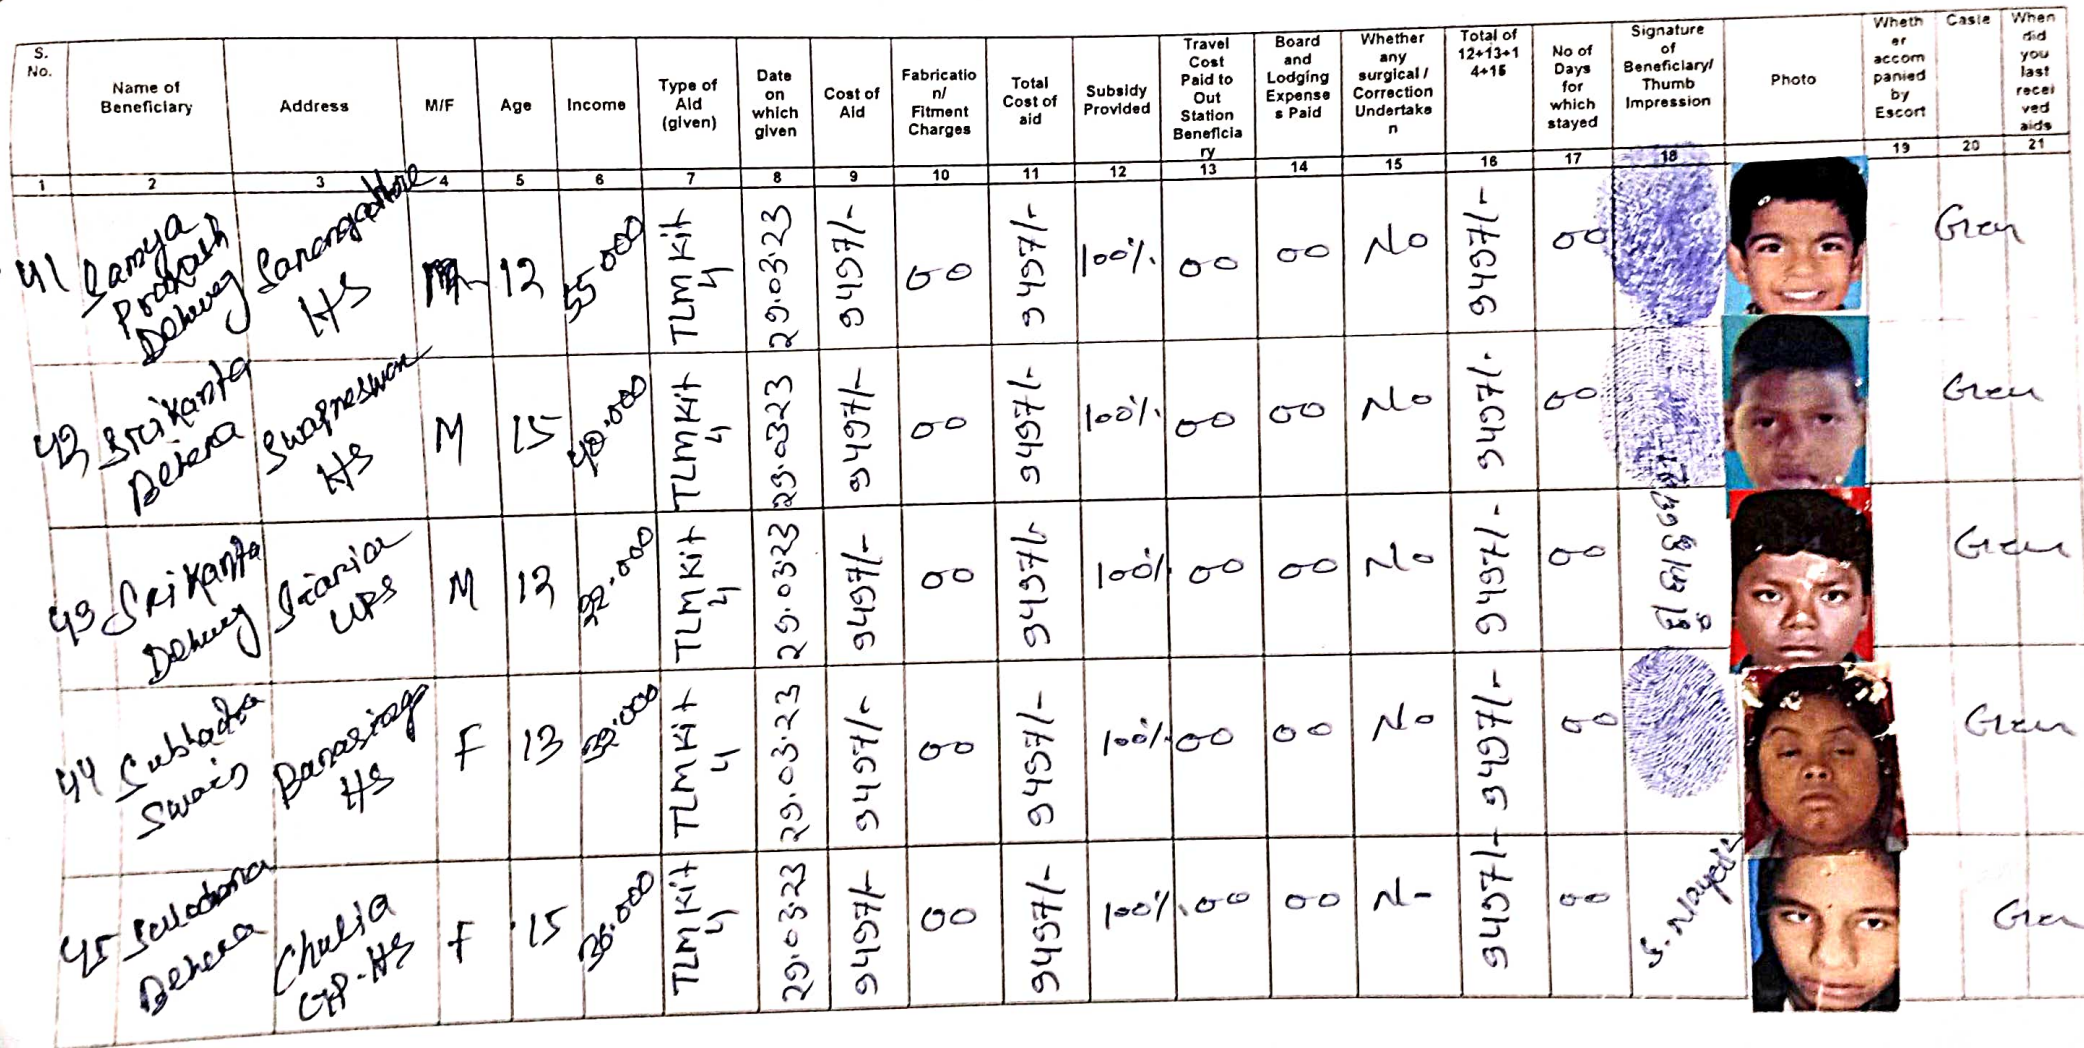 S. No.
Name of Beneficiary
Address
M/F
Age
Income
Type of Aid (given)
Date on which given
Cost of Aid
Fabricatio n/ Fitment Charges
Total Cost of aid
Subsidy Provided
Travel Cost Paid to Out Station Beneficia ry
Board and Lodging Expense s Paid
Whether any surgical / Correction Undertake n
Total of 12+13+1 4+15
No of Days for which stayed
Signature of Beneficiary/ Thumb Impression
Photo
Wheth er accom panied by Escort
Caste
When did you last recei ved aids
1 2 3 4 5 6 7 8 9 10 11 12 13 14 15 16 17 18 19 20 21
41 Samya Prakash Dehury HS 12 55.000 TLM Kit 4 29.03.23 9497/- 00 9497/- 100% 00 00 No 9497/- 00 Gen
42 Srikanta Behera Swapneswar HS M 15 40.000 TLM Kit 4 29.03.23 9497/- 00 9497/- 100% 00 00 No 9497/- 00 Gen
43 Srikanta Dehury Siaria UPS M 12 22.000 TLM Kit 4 29.03.23 9497/- 00 9497/- 100% 00 00 No 9497/- 00 Gen
44 Subhadra Swain HS F 13 32.000 TLM Kit 4 29.03.23 9497/- 00 9497/- 100% 00 00 No 9497/- 00 Gen
45 Sulochana Behera Chulia GP-HS F 15 36.000 TLM Kit 4 29.03.23 9497/- 00 9497/- 100% 00 00 No 9497/- 00 S. Nayak Gen